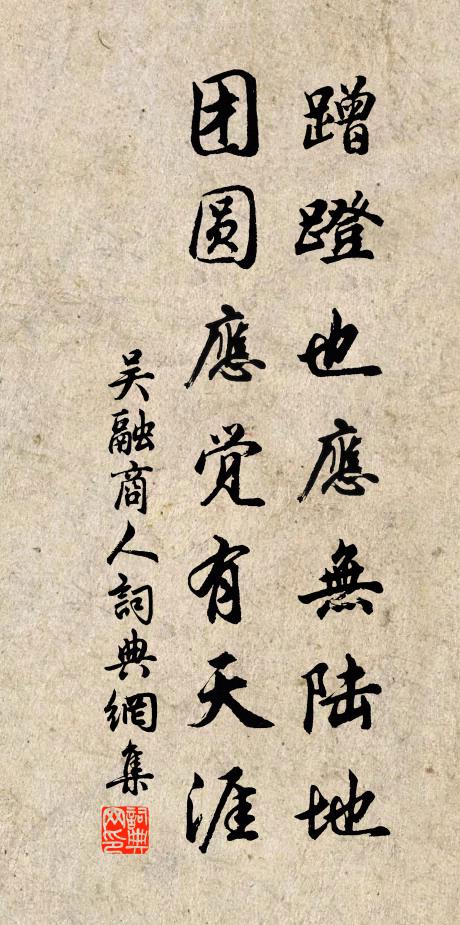 蹭蹬也應無陆地
团圆應觉有天涯
吴融商人詞典網集
詞典网印